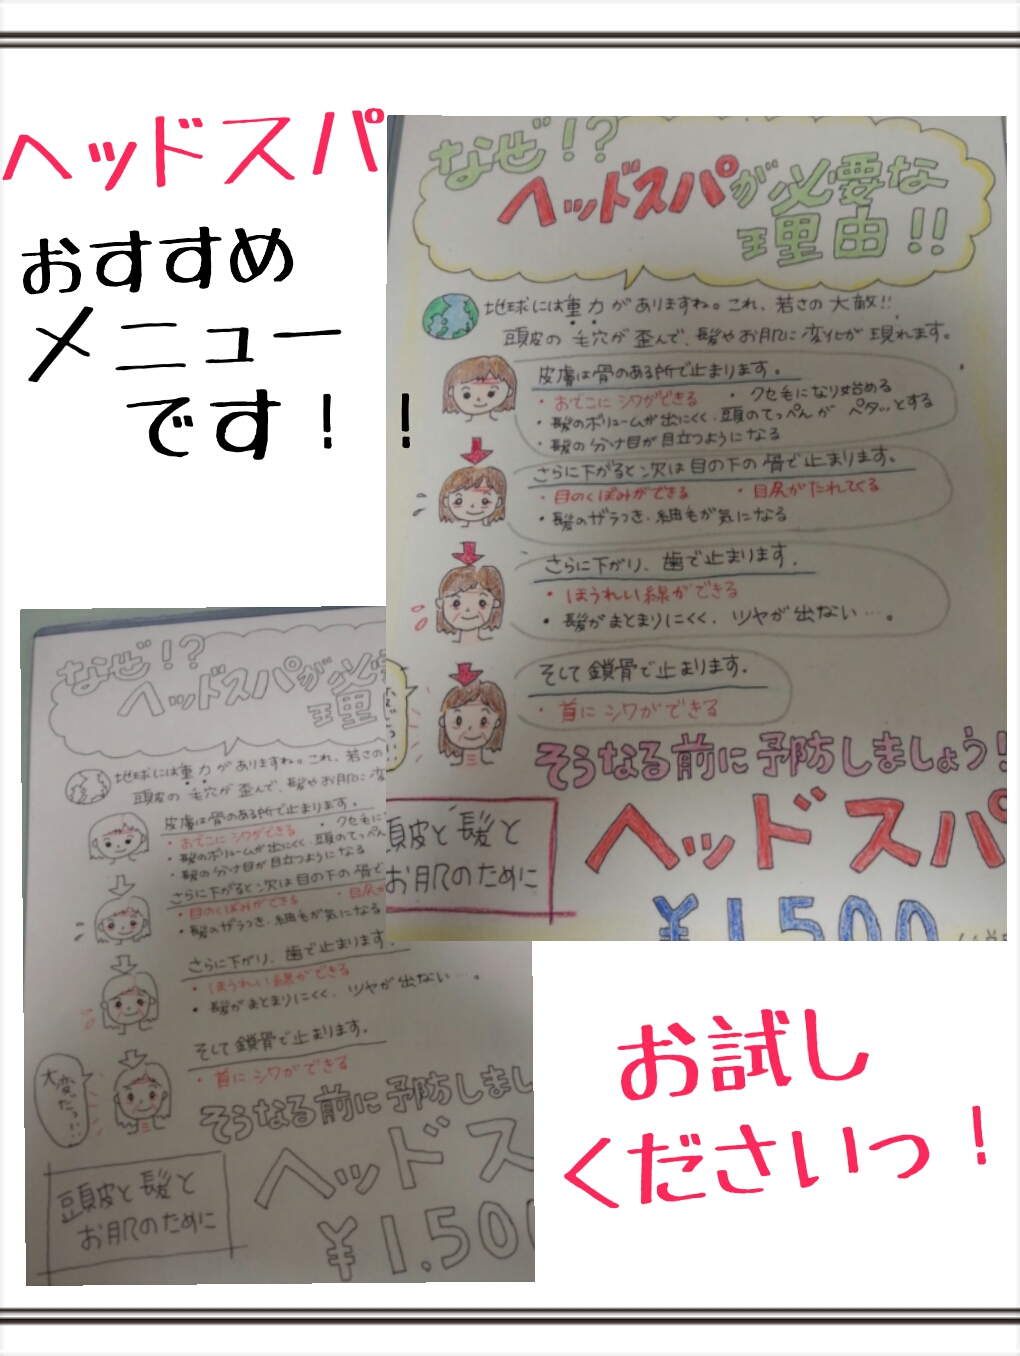 ヘッドスパ
おすすめ
メニュー
です！！
なぜ!?
ヘッドスパが必要な
理由!!
地球には重力がありますね。これ、若さの大敵!!
頭皮の毛穴が歪んで、髪やお肌に変化が現れます。
皮膚は骨のある所で止まります。
・おでこにシワができる ・クセ毛になり始める
・髪のボリュームが出にくく、頭のてっぺんがペタッとする
・髪の分け目が目立つようになる
さらに下がると次は目の下の骨で止まります。
・目のくぼみができる ・目尻がたれてくる
・髪のザラつき、細毛が気になる
さらに下がり、歯で止まります。
・ほうれい線ができる
・髪がまとまりにくく、ツヤが出ない…。
そして鎖骨で止まります。
・首にシワができる
そうなる前に予防しましょう!
頭皮と髪と
お肌のために
ヘッドスパ
¥1,500
なぜ!?
ヘッドスパが必
理
地球には重力がありますね。これ、若さの
頭皮の毛穴が歪んで、髪やお肌に変
皮膚は骨のある所で止まります。
・おでこにシワができる ・クセ毛に
・髪のボリュームが出にくく、頭のてっぺん
・髪の分け目が目立つようになる
さらに下がると次は目の下の骨で
・目のくぼみができる ・目尻が
・髪のザラつき、細毛が気になる
さらに下がり、歯で止まります。
・ほうれい線ができる
・髪がまとまりにくく、ツヤが出ない…。
そして鎖骨で止まります。
・首にシワができる
大変だっ…
そうなる前に予防しまし
頭皮と髪と
お肌のために
ヘッドス
¥1,500
お試し
くださいっ！